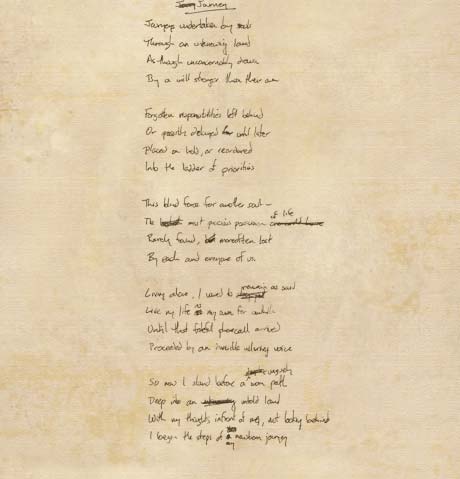 Journey
Journeys undertaken by
Through an unknowing land
As-though unconcernedly drawn
By a will stronger than their own
Forgotten responsibilities left behind
Or possibly delayed until later
Placed on hold, or reordered
Into the ladder of priorities
This blind force for another soul -
The most precious possession of life
Rarely found, moreoften lost
By each and everyone of us
Living alone, I vowed to as said
Live my life as my own for awhile
Until that fateful phonecall arrived
Proceeded by an invisible alluring voice
So now I stand before a worn path
Deep into an untold land
With my thoughts infront of me, not looking behind
I begin the steps of my newborn journey